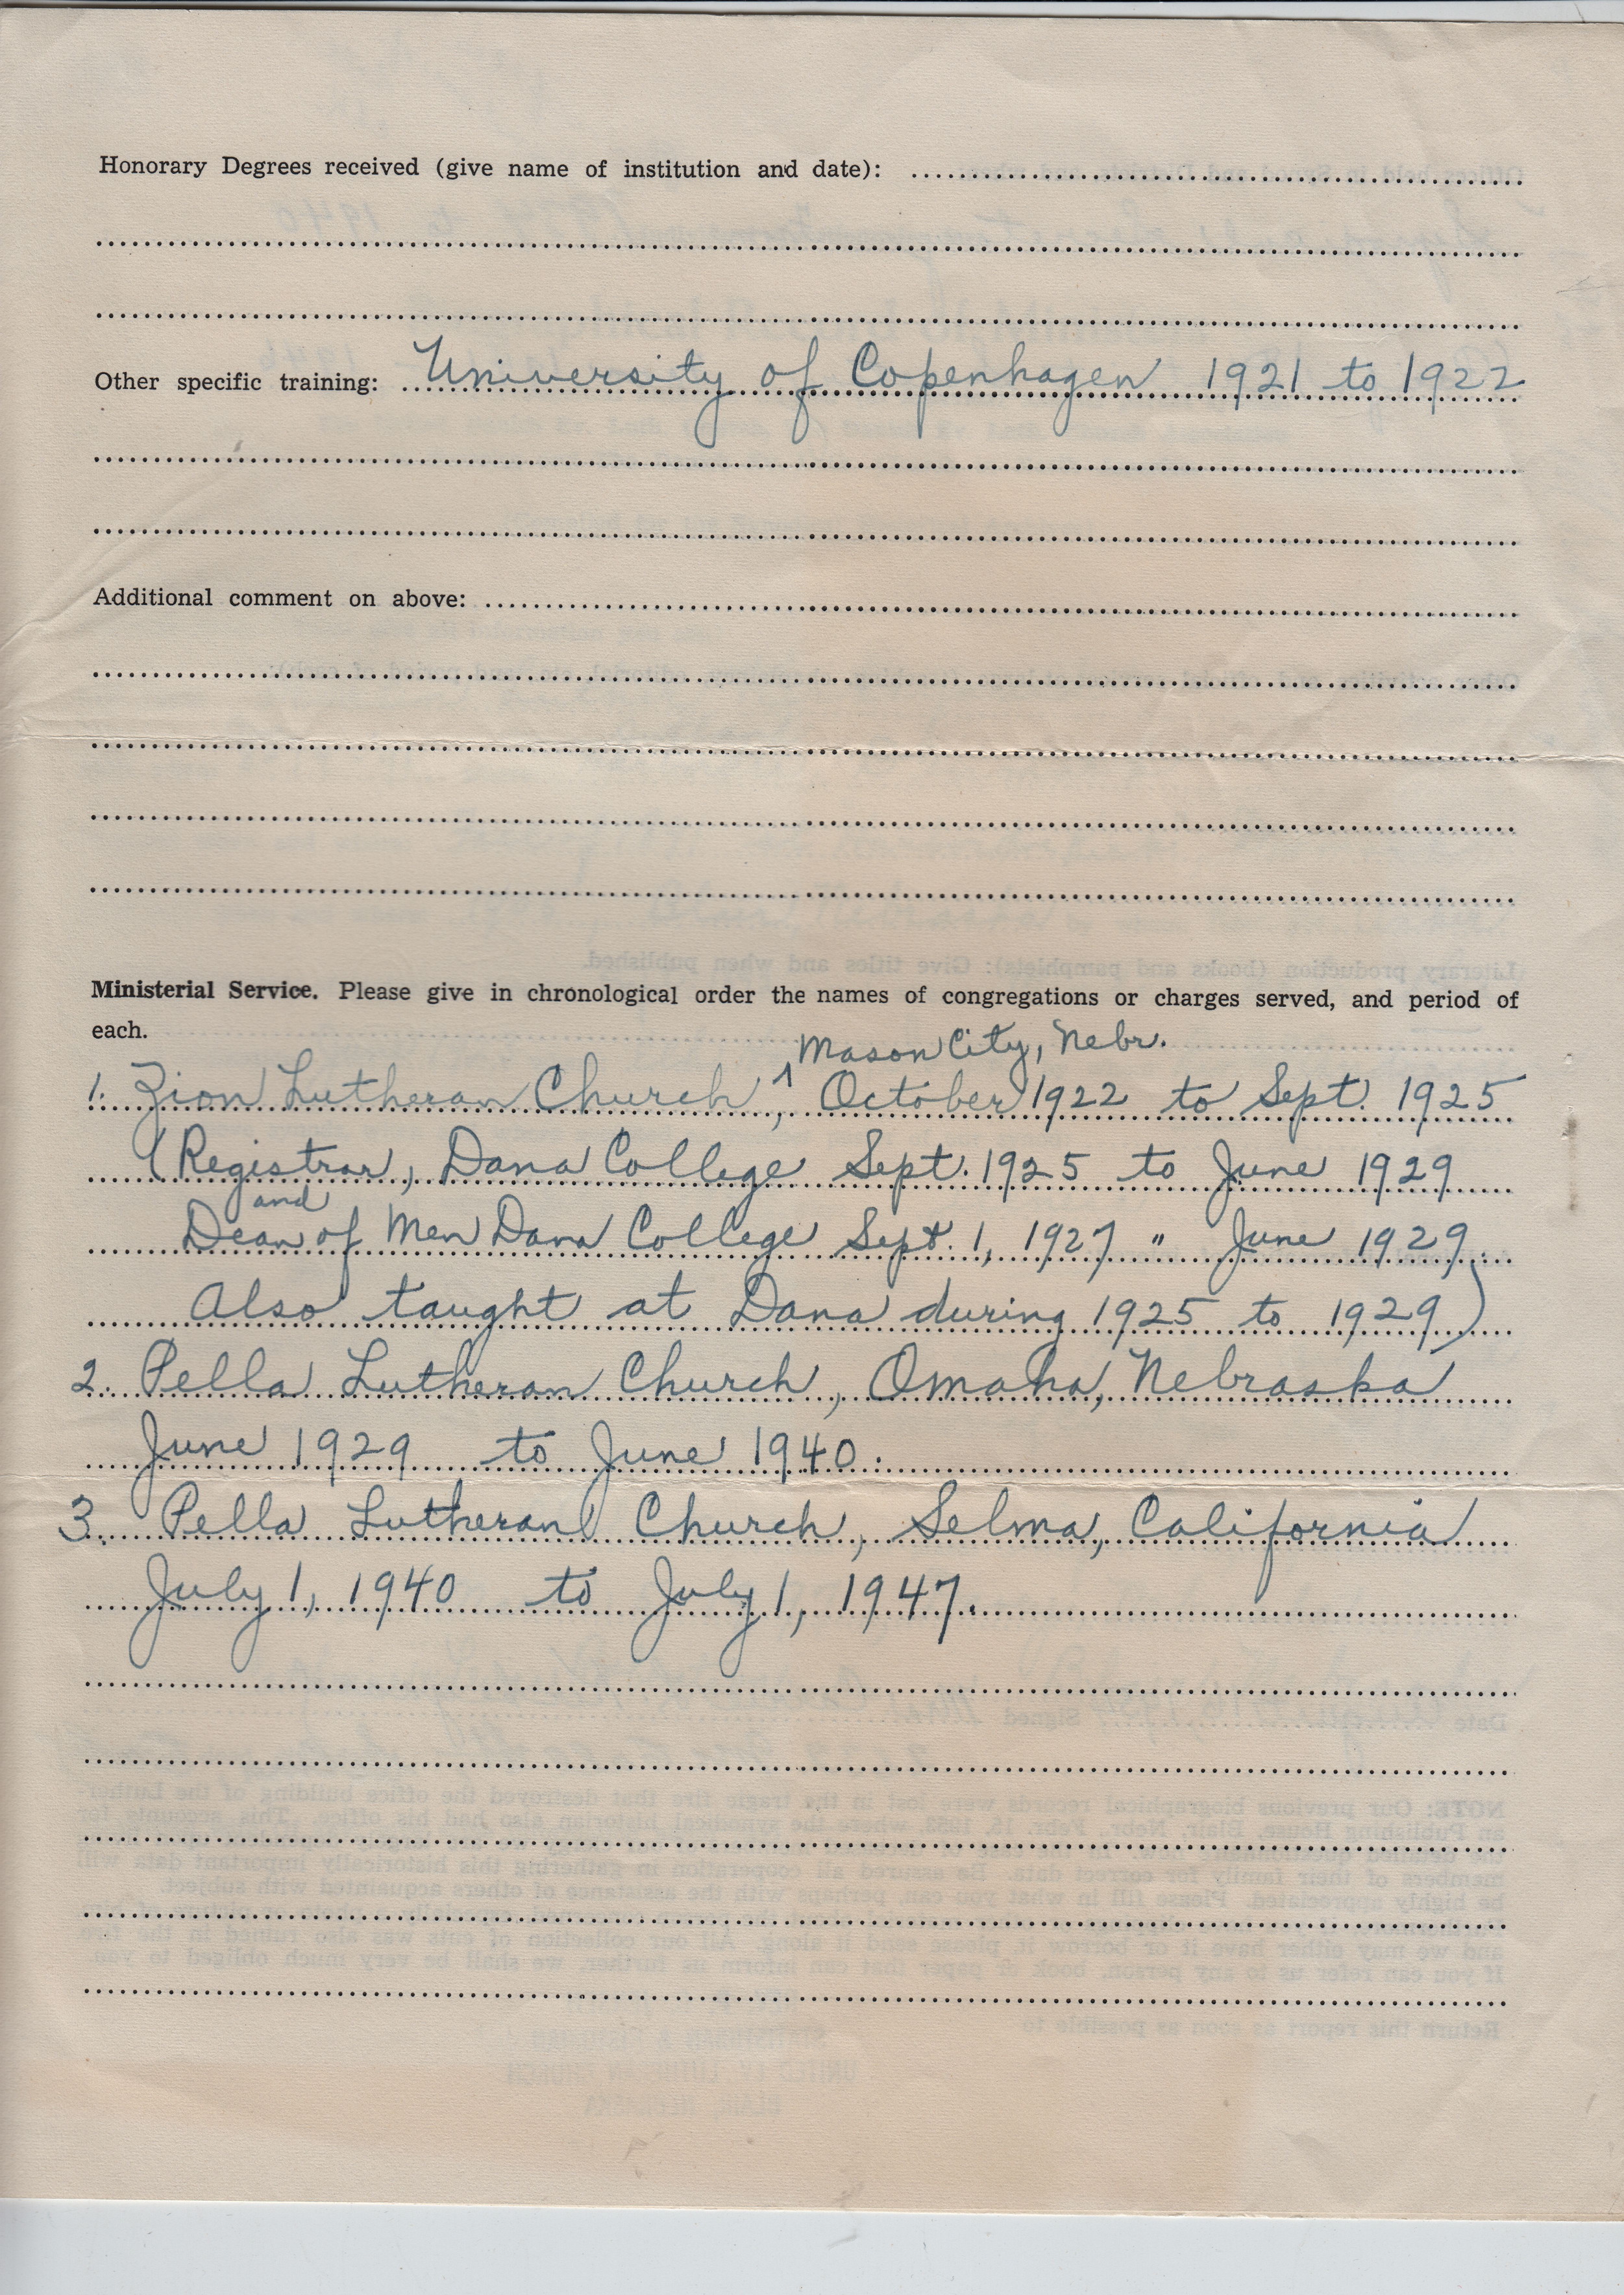 Honorary Degrees received (give name of institution and date):
Other specific training: University of Copenhagen 1921 to 1922
Additional comment on above:
Ministerial Service. Please give in chronological order the names of congregations or charges served, and period of
each.
Mason City, Nebr.
1. Zion Lutheran Church ^, October 1922 to Sept. 1925
(Registrar, Dana College Sept. 1925 to June 1929
and
Dean of Men Dana College Sept. 1, 1927 " June 1929.
Also taught at Dana during 1925 to 1929)
2. Pella Lutheran Church, Omaha, Nebraska
June 1929 to June 1940.
3. Pella Lutheran Church, Selma, California
July 1, 1940 to July 1, 1947.